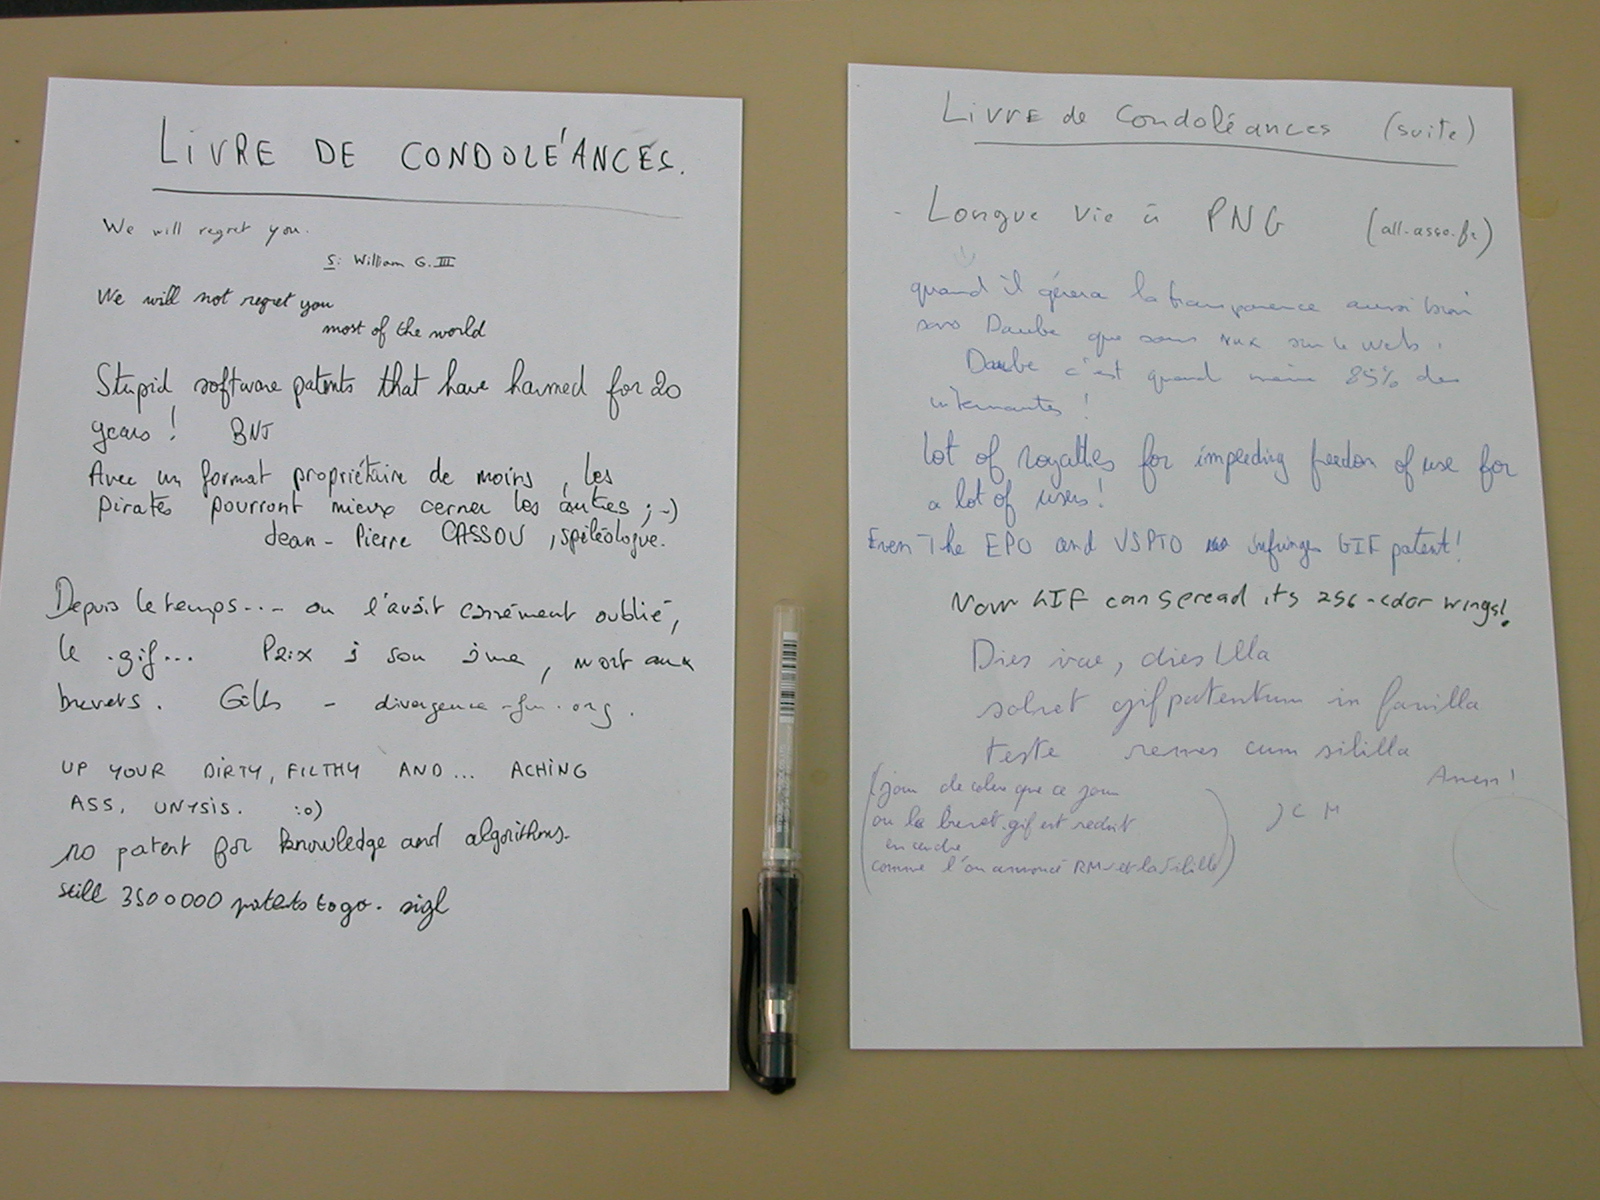 LIVRE DE CONDOLÉANCES.
We will regret you.
S: William G. III
We will not regret you
most of the world
Stupid software patents that have harmed for 20
years! BNJ
Avec un format propriétaire de moins, les
pirates pourront mieux cerner les autres ;-)
Jean-Pierre CASSOU, spéléologue.
Depuis le temps... on l'avait carrément oublié,
le .gif... Paix à son âme, mort aux
brevets. Gilles - divergence-fm.org.
UP YOUR DIRTY, FILTHY AND... ACHING
ASS, UNYSIS. :o)
no patent for knowledge and algorithms.
still 3500000 patents to go. sigl
Livre de Condoléances (suite)
- Longue vie à PNG (all.asso.fr)
quand il gérera la transparence aussi bien
sous Daube que sous sur le web.
Daube c'est quand même 85% des
internautes!
lot of royalties for impeeding freedon of use for
a lot of users!
Even The EPO and USPTO infringes GIF patent!
Now GIF can spread its 256-color wings!
Dies irae, dies Illa
solvet gifpatentum in favilla
teste cum sililla
Amen!
(jour de colère que ce jour
ou le brevet .gif est reduit
en cendre
comme l'on annoncé RMS et la Silille)
JCM